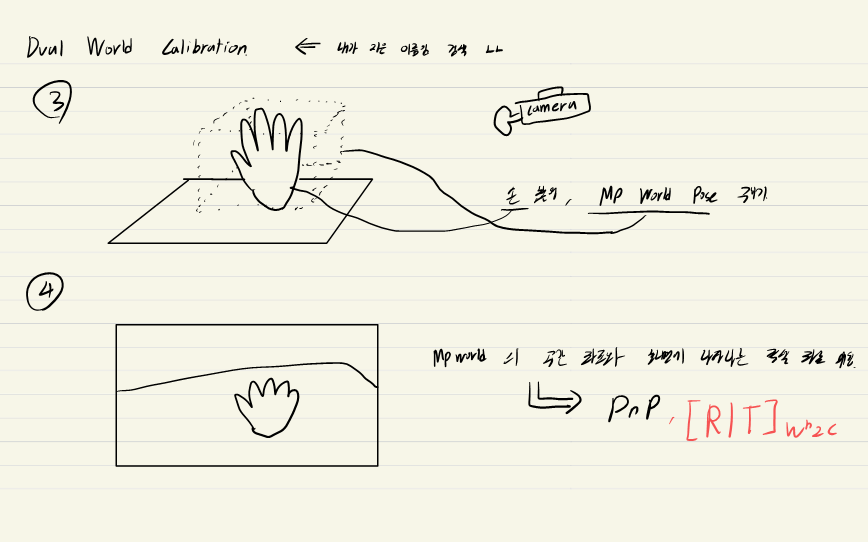 Dual World Calibration ← 내가 지은 이름임 검색 ㄴㄴ
③
camera
손 붙임, MP World Pose 구하기
④
MP world 의 공간 좌표와 화면에 나타나는 픽셀 좌표
PnP, [R|T] wʰ2c